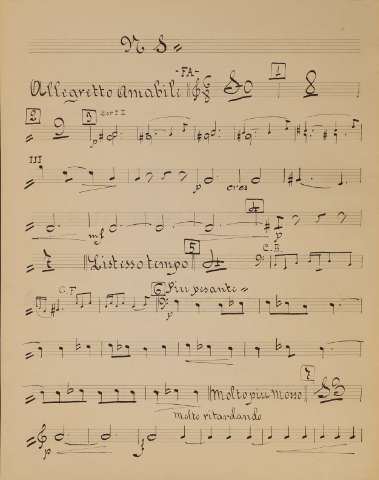 N 8=
-FA-
Allegretto Amabile 6/8 1 8
2 9 3
III p cres
mf 4 p
L'istesso tempo 5 C. B.
C. F. 6 Piu pesante=
Molto piu Mosso 7
molto ritardando
p f